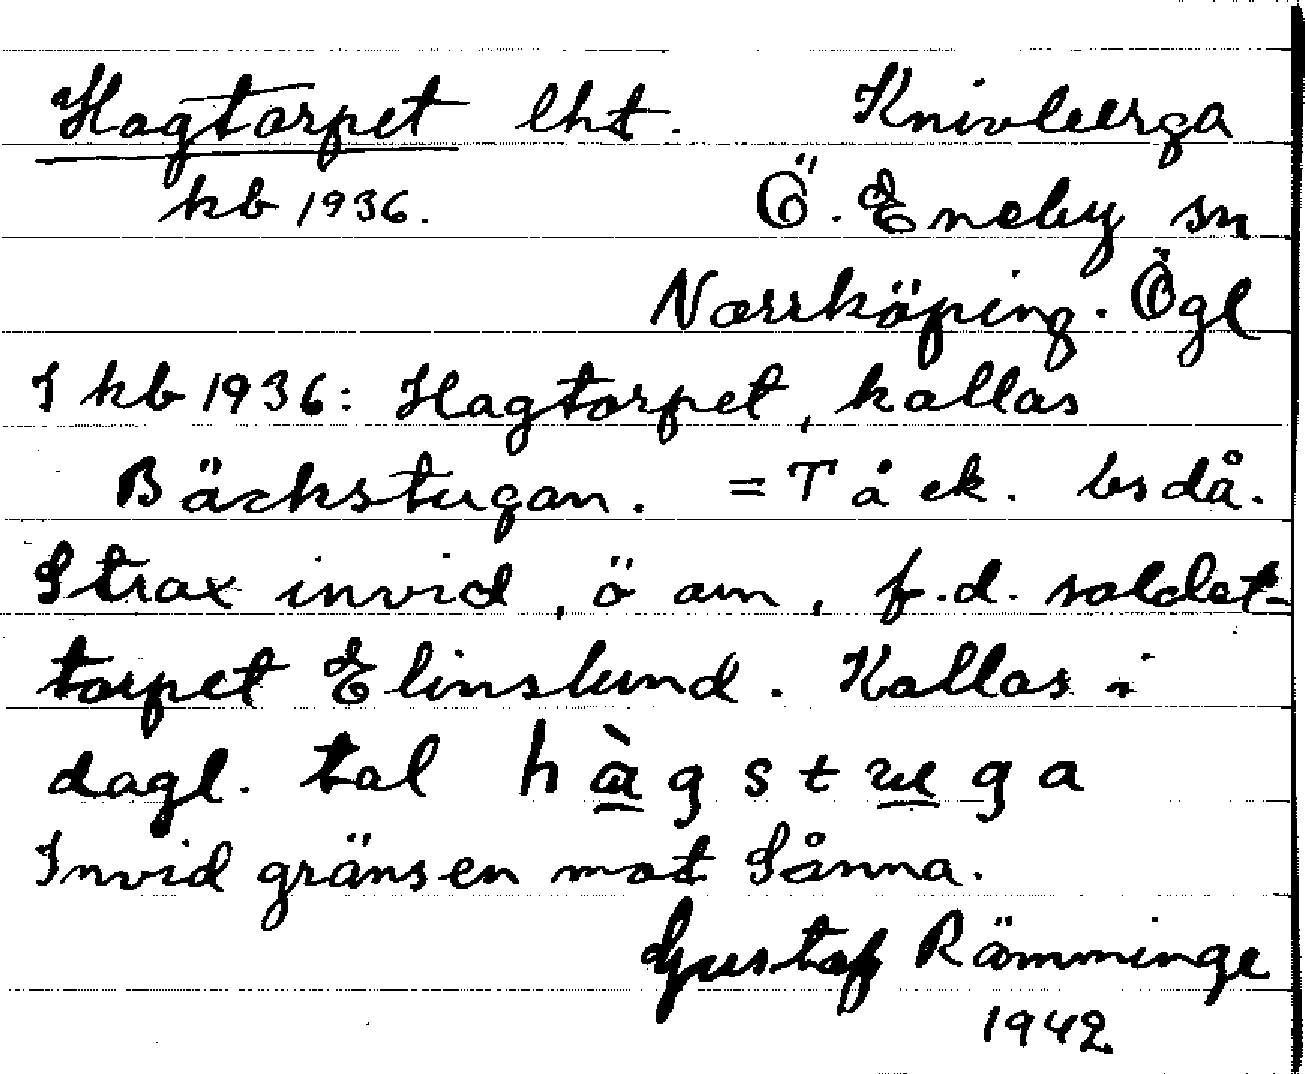 Hagtorpet lht. Knivberga
kb 1936. Ö. Eneby sn
Norrköping. Ögl
I kb 1936: Hagtorpet, kallas
Bäckstugan. = T å ek. bs då.
Strax invid, ö om, f.d. soldat-
torpet Elinslund. Kallas i
dagl. tal hàgstuga
Invid gränsen mot Sånna.
Gustaf Rämminge
1942